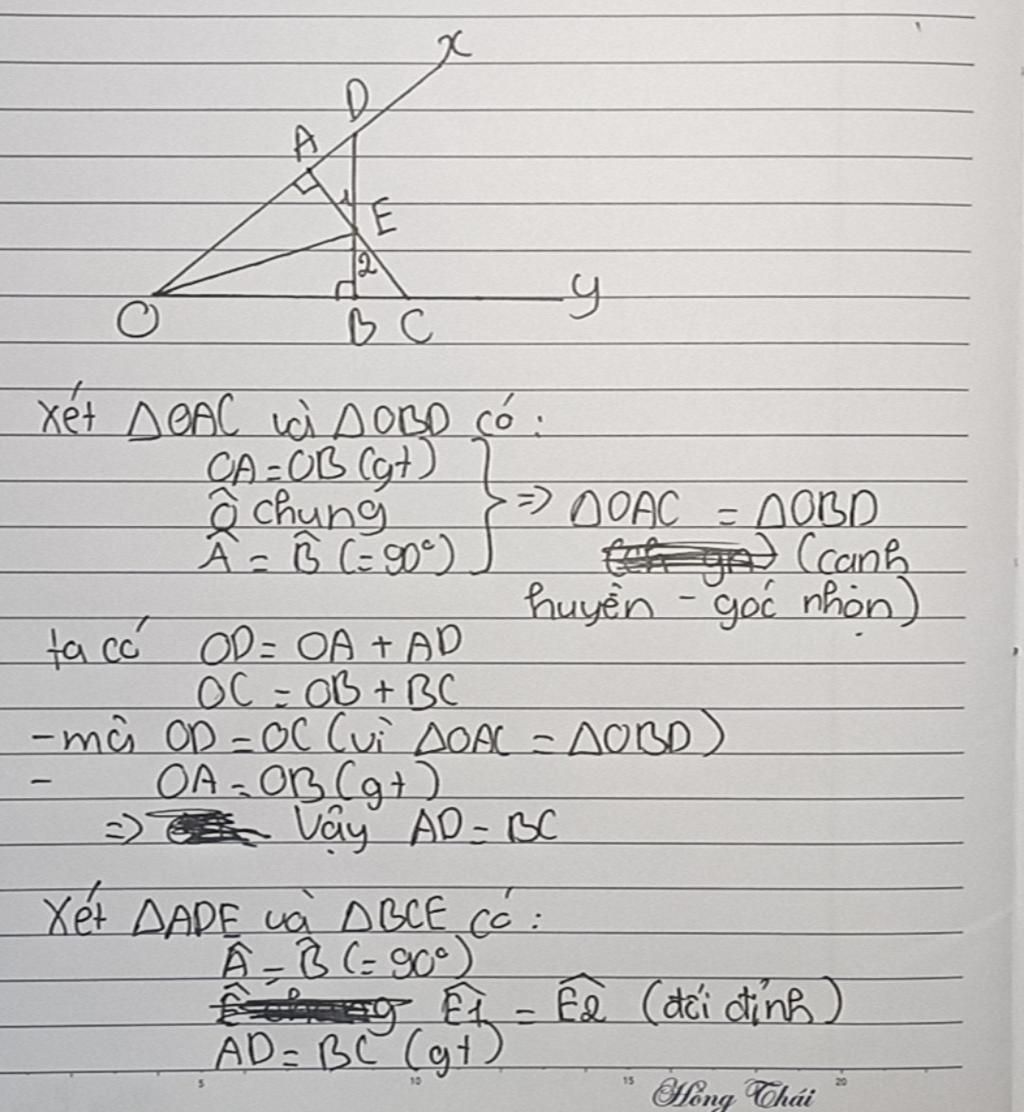 x
D
A
1
E
2
O
B C
y
Xét ΔOAC và ΔOBD có:
OA = OB (gt)
Ô chung
Â = B̂ (= 90°)
=> ΔOAC = ΔOBD
(cạnh
huyền - góc nhọn)
ta có OD = OA + AD
OC = OB + BC
- mà OD = OC (vì ΔOAC = ΔOBD)
- OA = OB (gt)
=> Vậy AD = BC
Xét ΔADE và ΔBCE có:
Â = B̂ (= 90°)
Ê1 = Ê2 (đối đỉnh)
AD = BC (gt)
5 10 15 20
Hồng Thái